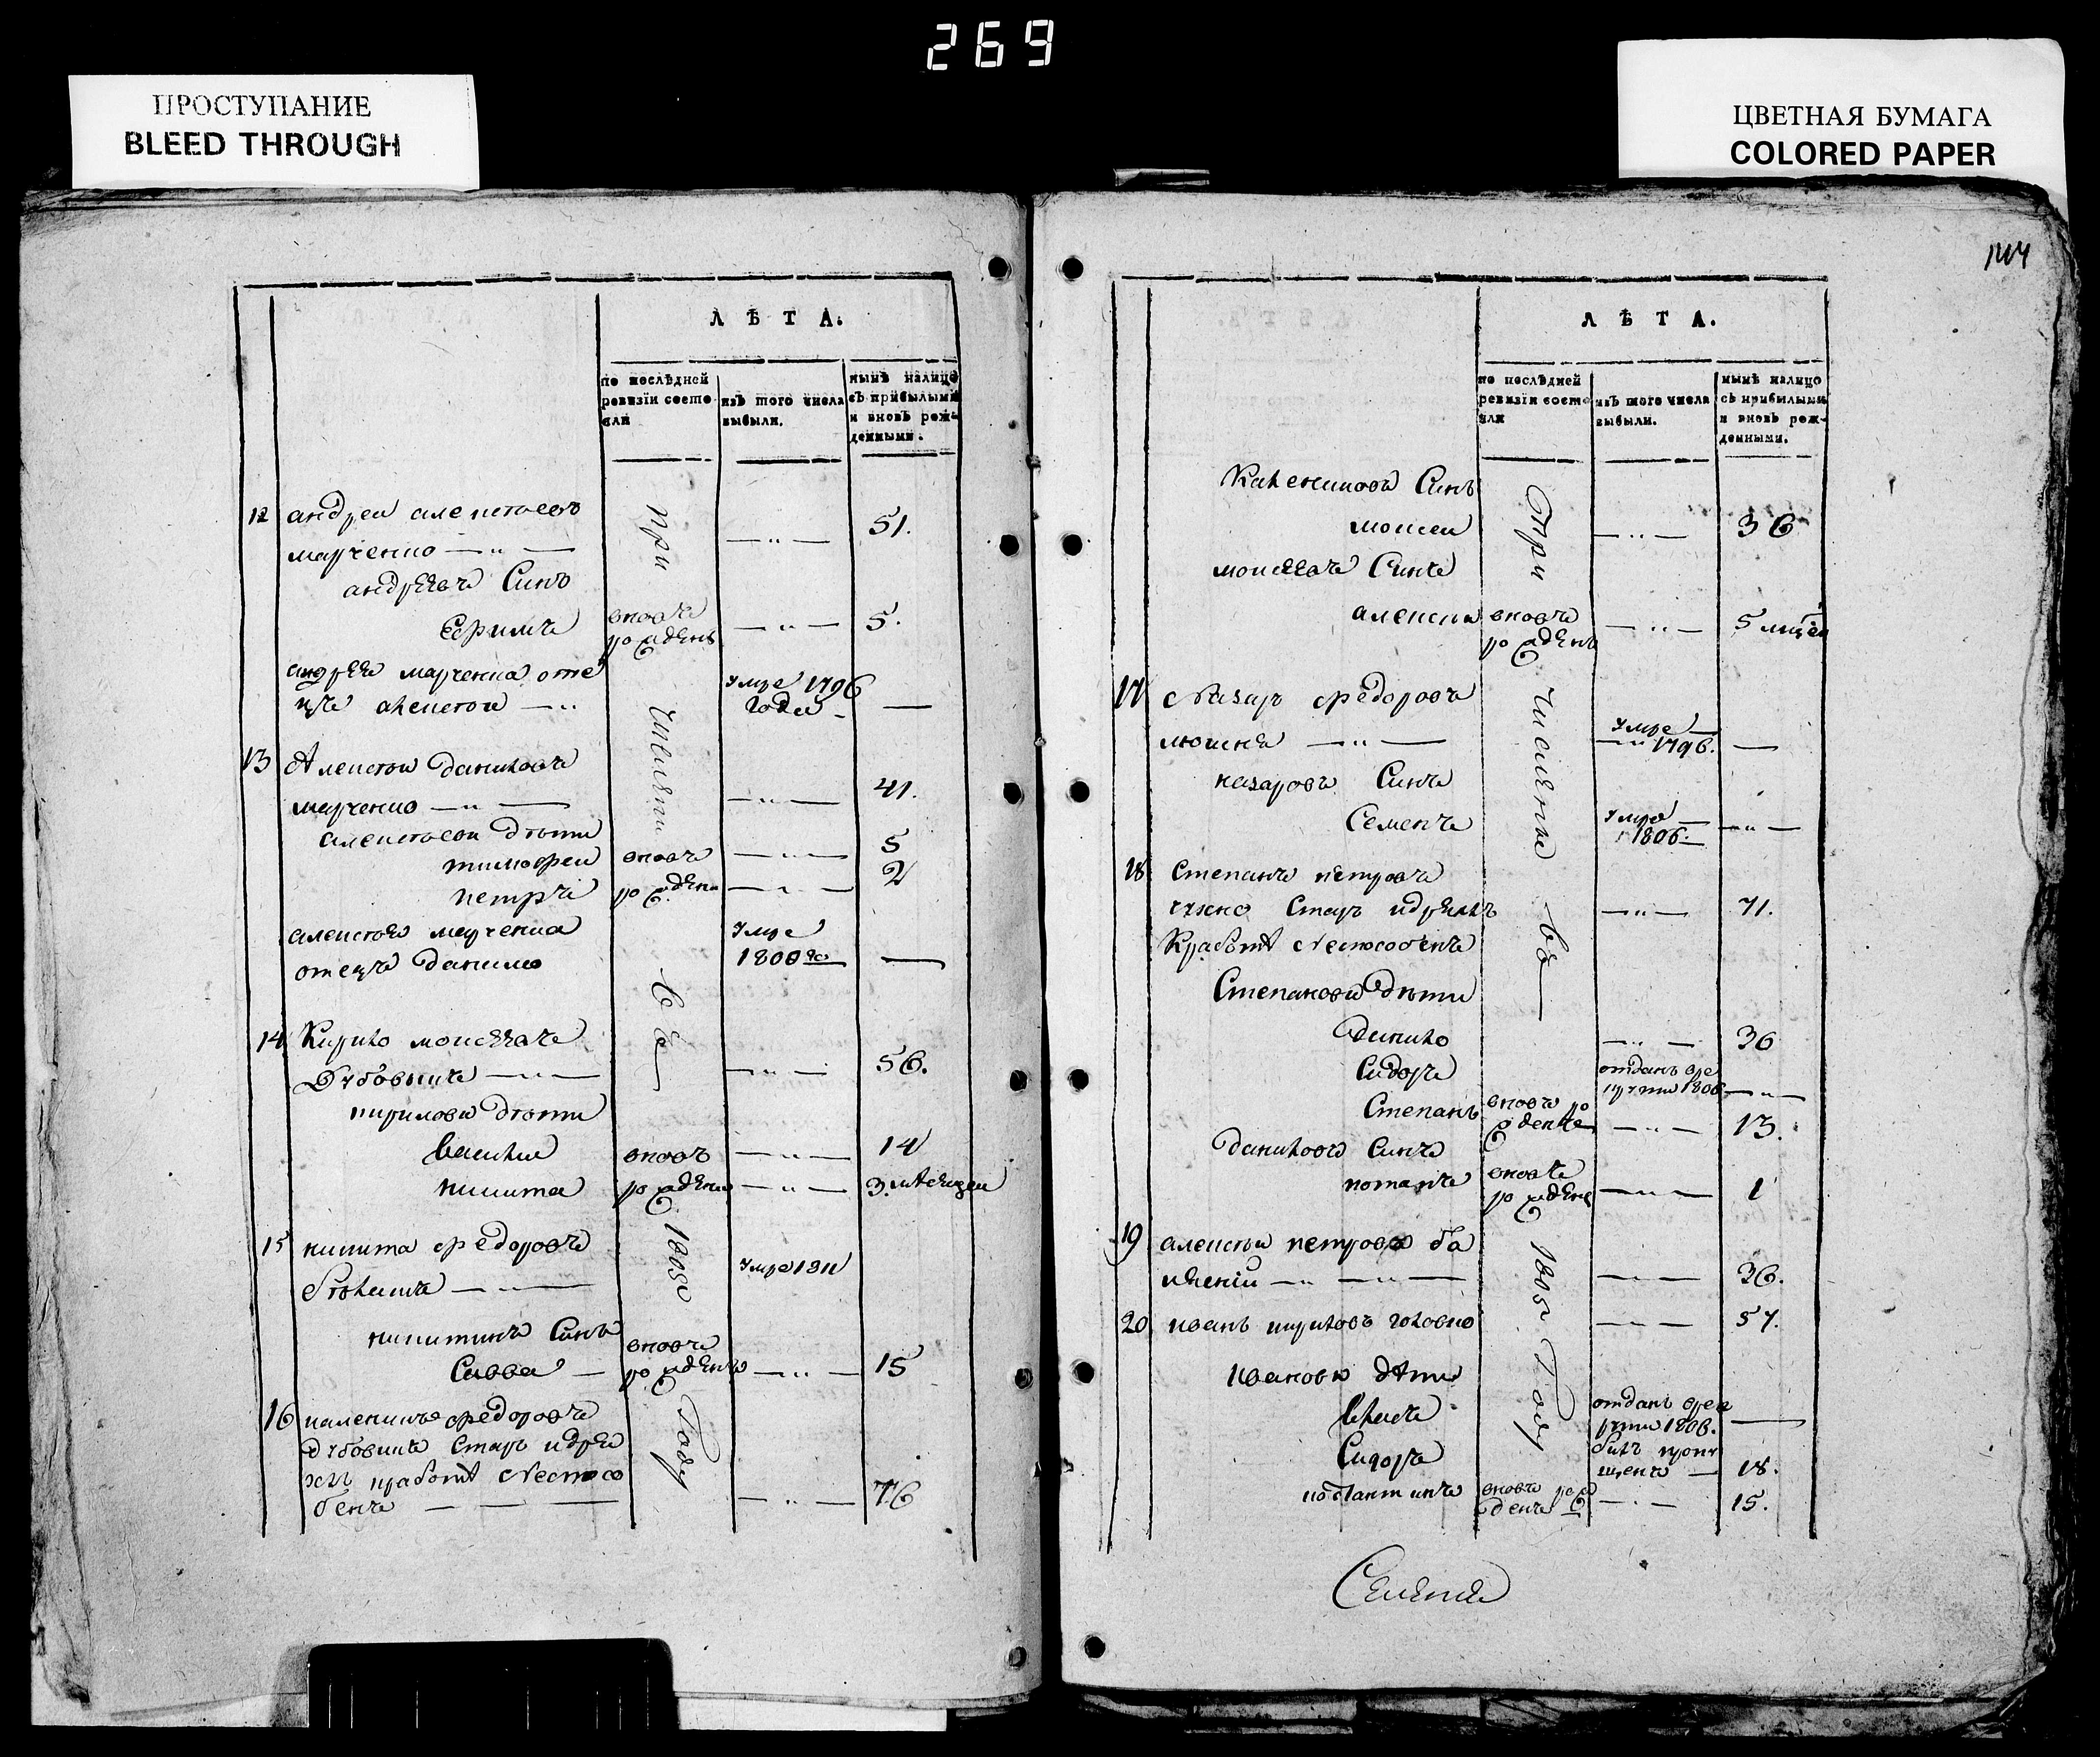 269
ПРОСТУПАНИЕ
BLEED THROUGH
ЦВЕТНАЯ БУМАГА
COLORED PAPER
144
ЛѢТА.
по послѣдней ревизіи состояли
изъ того числа выбыли.
нынѣ налицо съ прибылыми и вновь рожденными.
12 андреи алексѣевъ 51.
марченко — " —
андрѣевъ Синъ
Ефимъ вновъ рожденъ — " — 5.
андрѣя марченка оте умре 1796
цъ алексѣи — " годѣ —
13 Алексѣи даниловъ 41.
марченко — " —
алексѣеви дѣти
тимофеи вновъ — " — 5
петръ рожденъ — " — 2
алексѣя марченка умре
отецъ данило 1800 го —
14 Кирило моисѣевъ 56.
Дубовикъ — " —
кирилови дѣти
василии вновъ — " — 14
никита рожденъ — " — 3. мѣсецеи
15 никита федоровъ умре 1811
никитинъ Синъ вновъ
Савва — рожденъ — " — 15
16 каленикъ федоровъ
дубовикъ Старъ идрях
хлъ кработѣ Неспосо
бенъ — — — " — 76
При числени въ 1805 Году
ЛѢТА.
по послѣдней ревизіи состояли
изъ того числа выбыли.
нынѣ налицо съ прибылыми и вновь рожденными.
Калениковъ Синъ
моисеи — " — 36
моисѣевъ Синъ
алексѣи вновъ рожденъ — " — 5 мцей
17 Назаръ федоровъ
умре
— " — 1796. —
назаровъ Синъ
Семенъ умре 1806. — " —
18 Степанъ петровъ
Старъ идряхлъ — " — 71.
Кработѣ Неспособенъ
Степанови дѣти
Данило — " — 36
Сидоръ отданъ вре
крути 1806 — " —
Степанъ вновъ рожденъ — " — 13.
даниловъ Синъ
потапъ вновъ рожденъ — " — 1
19 алексѣи петровъ ба
— " — 36.
20 иванъ кириловъ головко — " — 57.
Иванови дѣти
Власъ отданъ врек
рути 1806. —
Сидоръ билъ пропу
щенъ — 18.
костантинъ вновъ рожденъ — " — 15.
При числени въ — 1805 Году